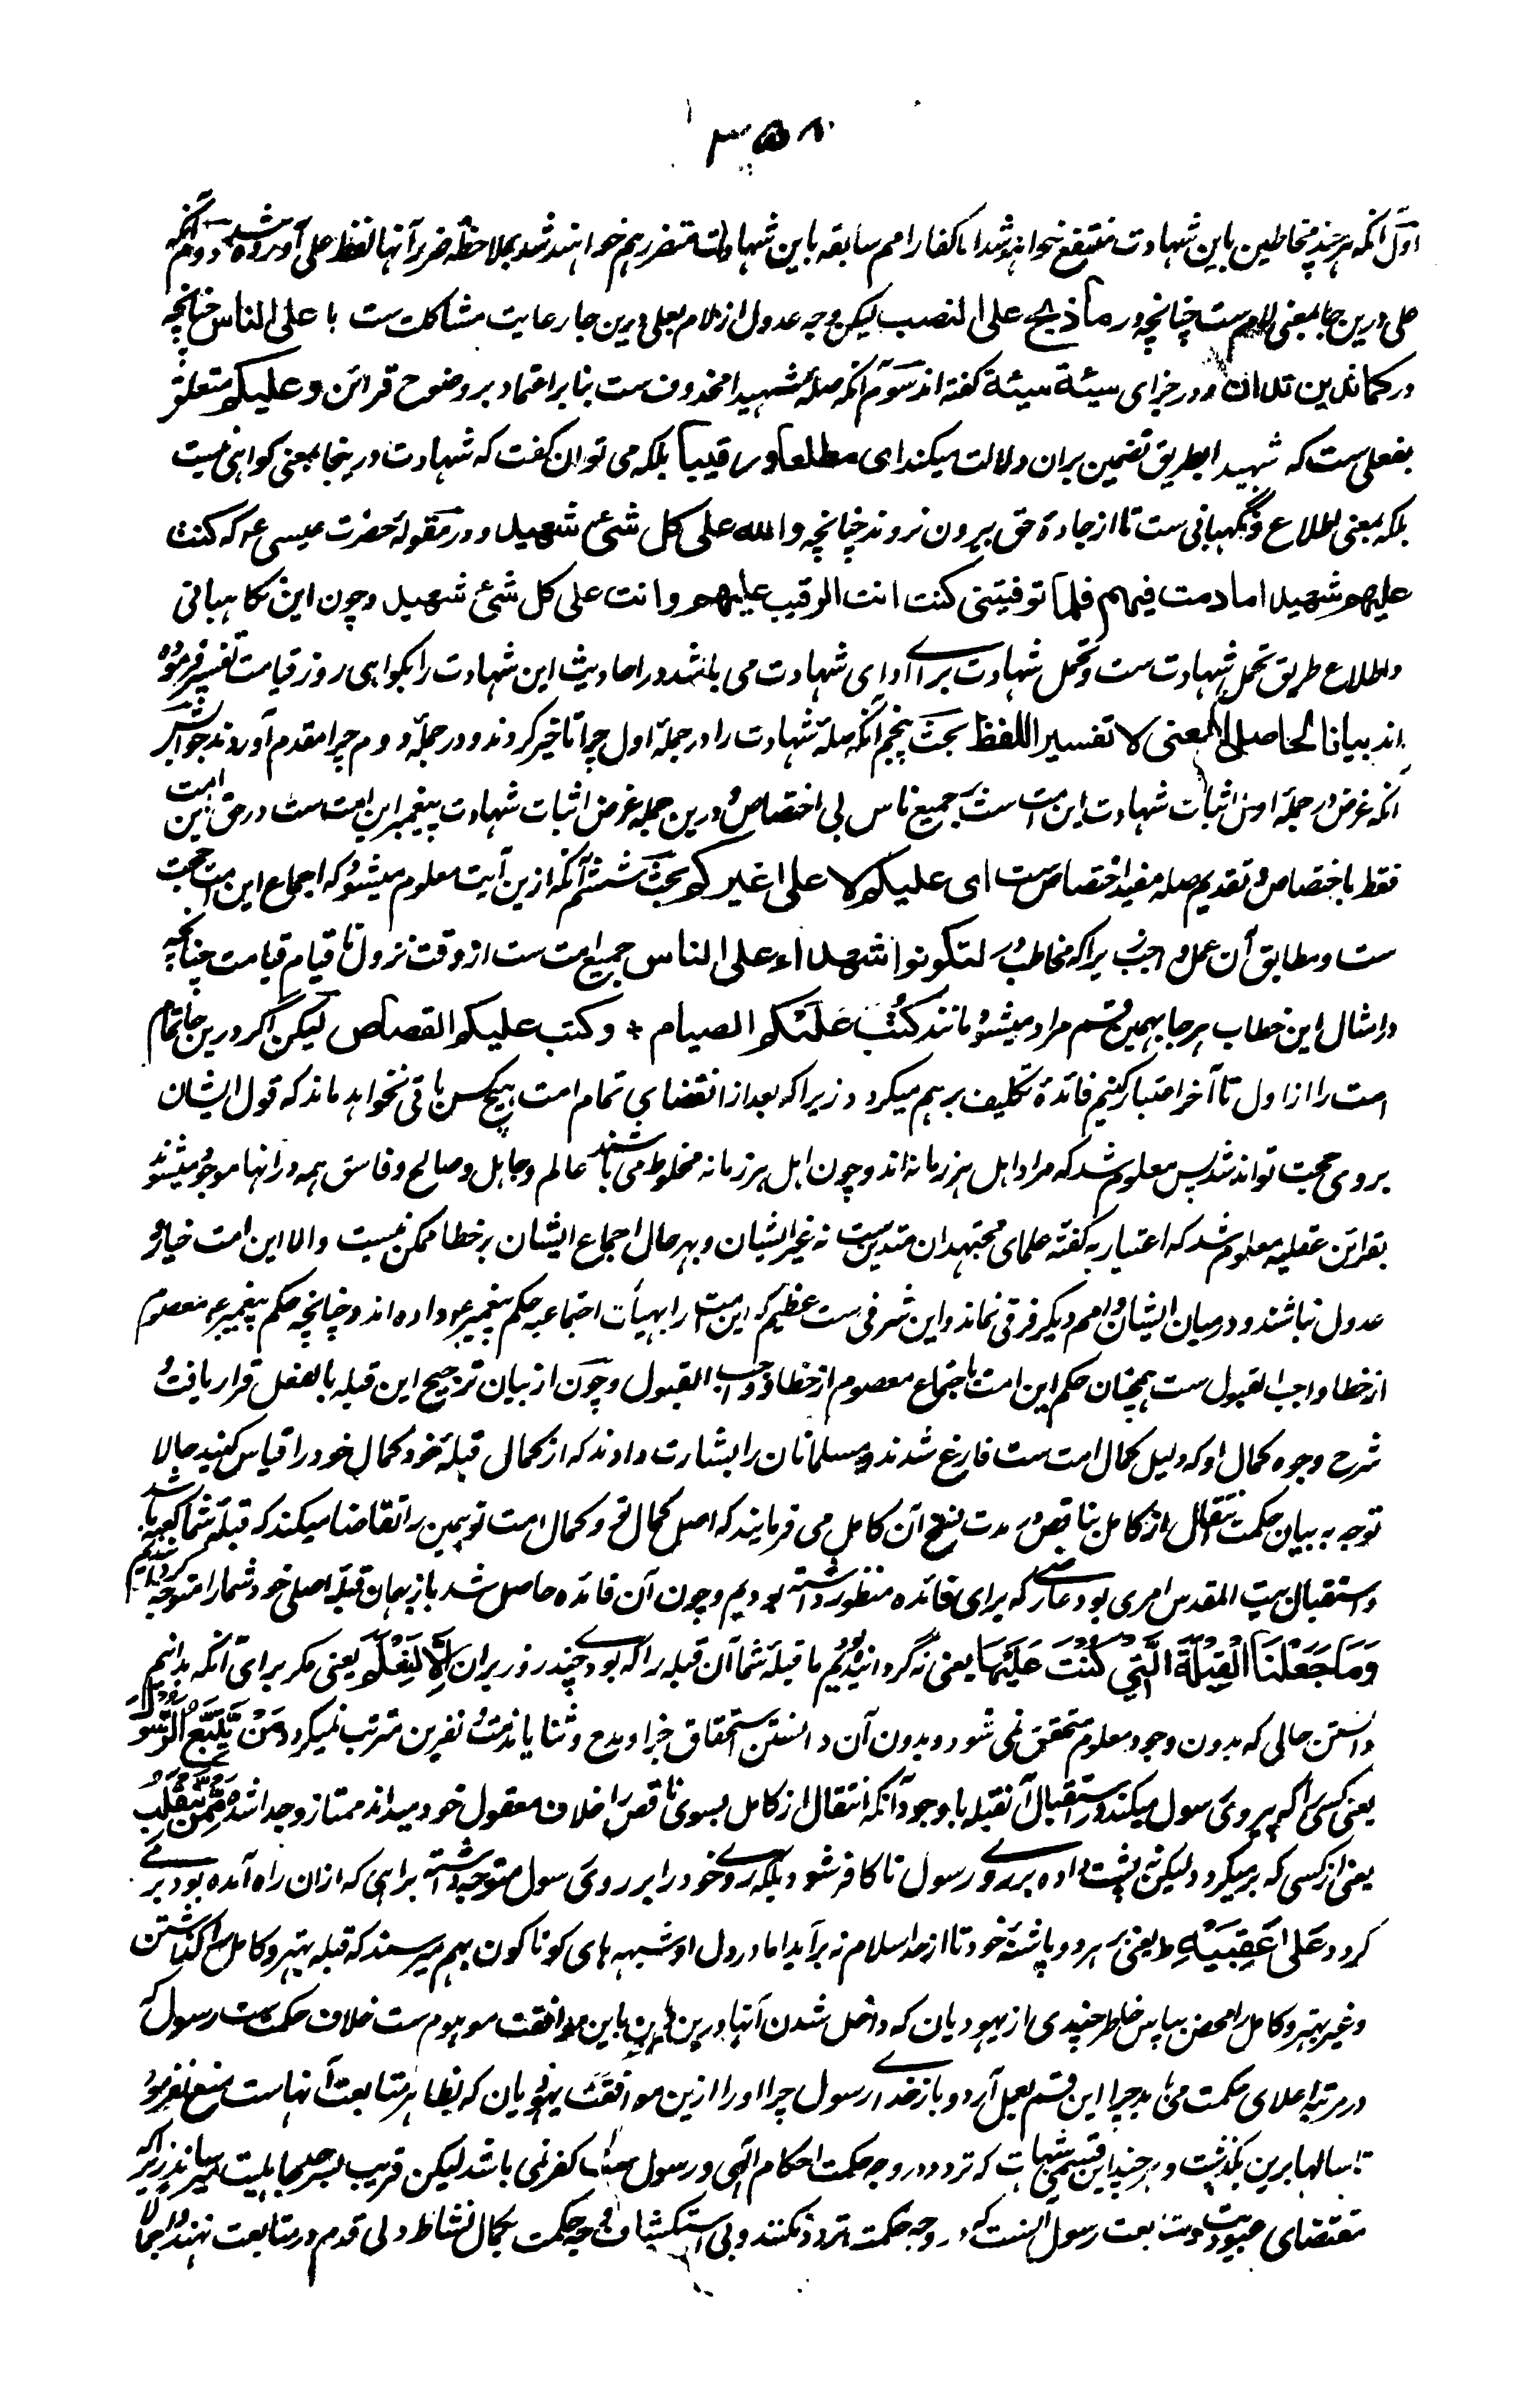 ۳۵۸
اول آنکه هر چند مخاطبین باین شهادت منتفع خواهند شد اما کفار امم سابقه باین شهادت متضرر هم خواهند شد بملاحظه ضرر آنها لفظ علی آورده شد دوم آنکه
علی درین جا بمعنی لام ست چنانچه در ما ذبح علی النصب لیکن وجه عدول از لام بعلی درین جا رعایت مشاکلت ست با علی الناس چنانچه
در کما تدین تدان و در جزای سیئة سیئة گفته اند سوم آنکه صلهٔ شهیدا محذوف ست بنا بر اعتماد بر وضوح قرائن و علیکم متعلق
بفعلی ست که شهیدا بطریق تضمین بران دلالت میکند ای مطلعا و رقیبا بلکه می توان گفت که شهادت درینجا بمعنی گواهی نیست
بلکه بمعنی اطلاع و نگهبانی ست تا از جادهٔ حق بیرون نروند چنانچه والله علی کل شیٔ شهید و در مقولهٔ حضرت عیسی ع که کنت
علیهم شهیدا ما دمت فیهم فلما توفیتنی کنت انت الرقیب علیهم و انت علی کل شیٔ شهید و چون این نگاهبانی
و اطلاع طریق تحمل شهادت ست و تحمل شهادت برای ادای شهادت می باشد در احادیث این شهادت را بگواهی روز قیامت تفسیر فرموده
اند بیانا لحاصل المعنی لا تفسیرا للفظ بحث پنجم آنکه صلهٔ شهادت را در جملهٔ اول چرا تاخیر کردند و در جملهٔ دوم چرا مقدم آوردند جوابش
آنکه غرض در جملهٔ اولی اثبات شهادت این امت ست بر جمیع ناس بی اختصاص و درین جمله غرض اثبات شهادت پیغمبر این امت ست در حق این امت
فقط باختصاص و تقدیم صله مفید اختصاص ست ای علیکم لا علی غیرکم بحث ششم آنکه ازین آیت معلوم میشود که اجماع این امت حجت
ست و مطابق آن عمل واجب زیرا که مخاطب لتکونوا شهداء علی الناس جمیع امت ست از وقت نزول تا قیام قیامت چنانچه
در امثال این خطاب هر جا بهمین قسم مراد میشود مانند کُتِبَ عَلَیْکُم الصیام * و کتب علیکم القصاص لیکن اگر درین جا تمام
امت را از اول تا آخر اعتبار کنیم فائدهٔ تکلیف برهم میگردد زیرا که بعد از انقضای تمام امت هیچکس باقی نخواهد ماند که قول ایشان
بر وی حجت تواند شد پس معلوم شد که مراد اهل هر زمانه اند و چون اهل هر زمانه مخلوط می باشند عالم و جاهل و صالح و فاسق همه در انها موجود میشوند
بقراین عقلیه معلوم شد که اعتبار به گفته علمای مجتهدان متدین ست نه غیر ایشان و بهر حال اجماع ایشان بر خطا ممکن نیست والا این امت خیار و
عدول نباشند و درمیان ایشان و امم دیگر فرقی نماند و این شرفی ست عظیم که این امت را بهیأت اجتماعیه حکم پیغمبر ع داده اند و چنانچه حکم پیغمبر ع معصوم
از خطا و واجب القبول ست همچنان حکم این امت باجتماع معصوم از خطا و واجب القبول و چون از بیان ترجیح این قبله بالفعل قرار یافت و
شرح وجوه کمال او که دلیل کمال امت ست فارغ شدند و مسلمانان را بشارت دادند که از کمالی قبلهٔ خود کمال خود را قیاس کنید حالا
توجه به بیان حکمت انتقال از کامل بناقص در مدت نسخ آن کامل می فرمایند که اصل کمال تو و کمال امت تو همین را تقاضا میکند که قبلهٔ شما کعبه باشد
و استقبال بیت المقدس امری بود عارضی که برای فائده منظور داشته بودیم و چون آن فائده حاصل شد باز بهمان قبلهٔ اصلی خود شما را متوجه گردانیدیم
وَمَا جَعَلْنَا الْقِبْلَةَ الَّتِي كُنْتَ عَلَيْهَا یعنی نه گردانیده بودیم ما قبلهٔ شما آن قبله را که بودی چند روز بران اِلَّا لِنَعْلَمَ یعنی مگر برای آنکه بدانیم
دانستن حالی که بدون وجود معلوم متحقق نمی شود و بدون آن دانستن استحقاق جزا و مدح و ثنا یا مذمت و نفرین مترتب نمیگردد مَنْ يَّتَّبِعُ الرَّسُوْلَ
یعنی کسی را که پیروی رسول میکند در استقبال آن قبله با وجود آنکه انتقال از کامل بسوی ناقص را خلاف معقول خود میداند ممتاز و جدا شده مِمَّنْ يَّنْقَلِبُ
یعنی از کسی که بر میگردد ولیکن نه پشت داده بر روی رسول تا کافر شود بلکه روی خود را بر روی رسول متوجه داشته براهی که ازان راه آمده بود بر می
گردد عَلٰى عَقِبَيْهِ ط یعنی بر هر دو پاشنهٔ خود تا از حد اسلام نه برآید اما در دل او شبهه های گوناگون بهم میرسند که قبله بهتر و کامل را گذاشتن
و غیر بهتر و کامل را محض بپاس خاطر چندی از یهودیان که داخل شدن آنها درین دین باین موافقت موهوم ست خلاف حکمت ست رسول که
در مرتبهٔ اعلای حکمت می باید چرا این قسم بعمل آرد و باز خدای رسول چرا او را ازین موافقت یهودیان که بظاهر متابعت آنهاست منع نفرمود
تا سالها برین بگذشت و هر چند این قسم شبهات که تردد در وجه حکمت احکام الهی و رسول ست کفر نمی باشد لیکن قریب بسرحد جاهلیت میرساند زیرا که
مقتضای عبودیت و متابعت رسول آنست که در وجه حکمت تردد نکنند و بی استکشاف وجه حکمت بکمال نشاط دلی قدم در متابعت نهند